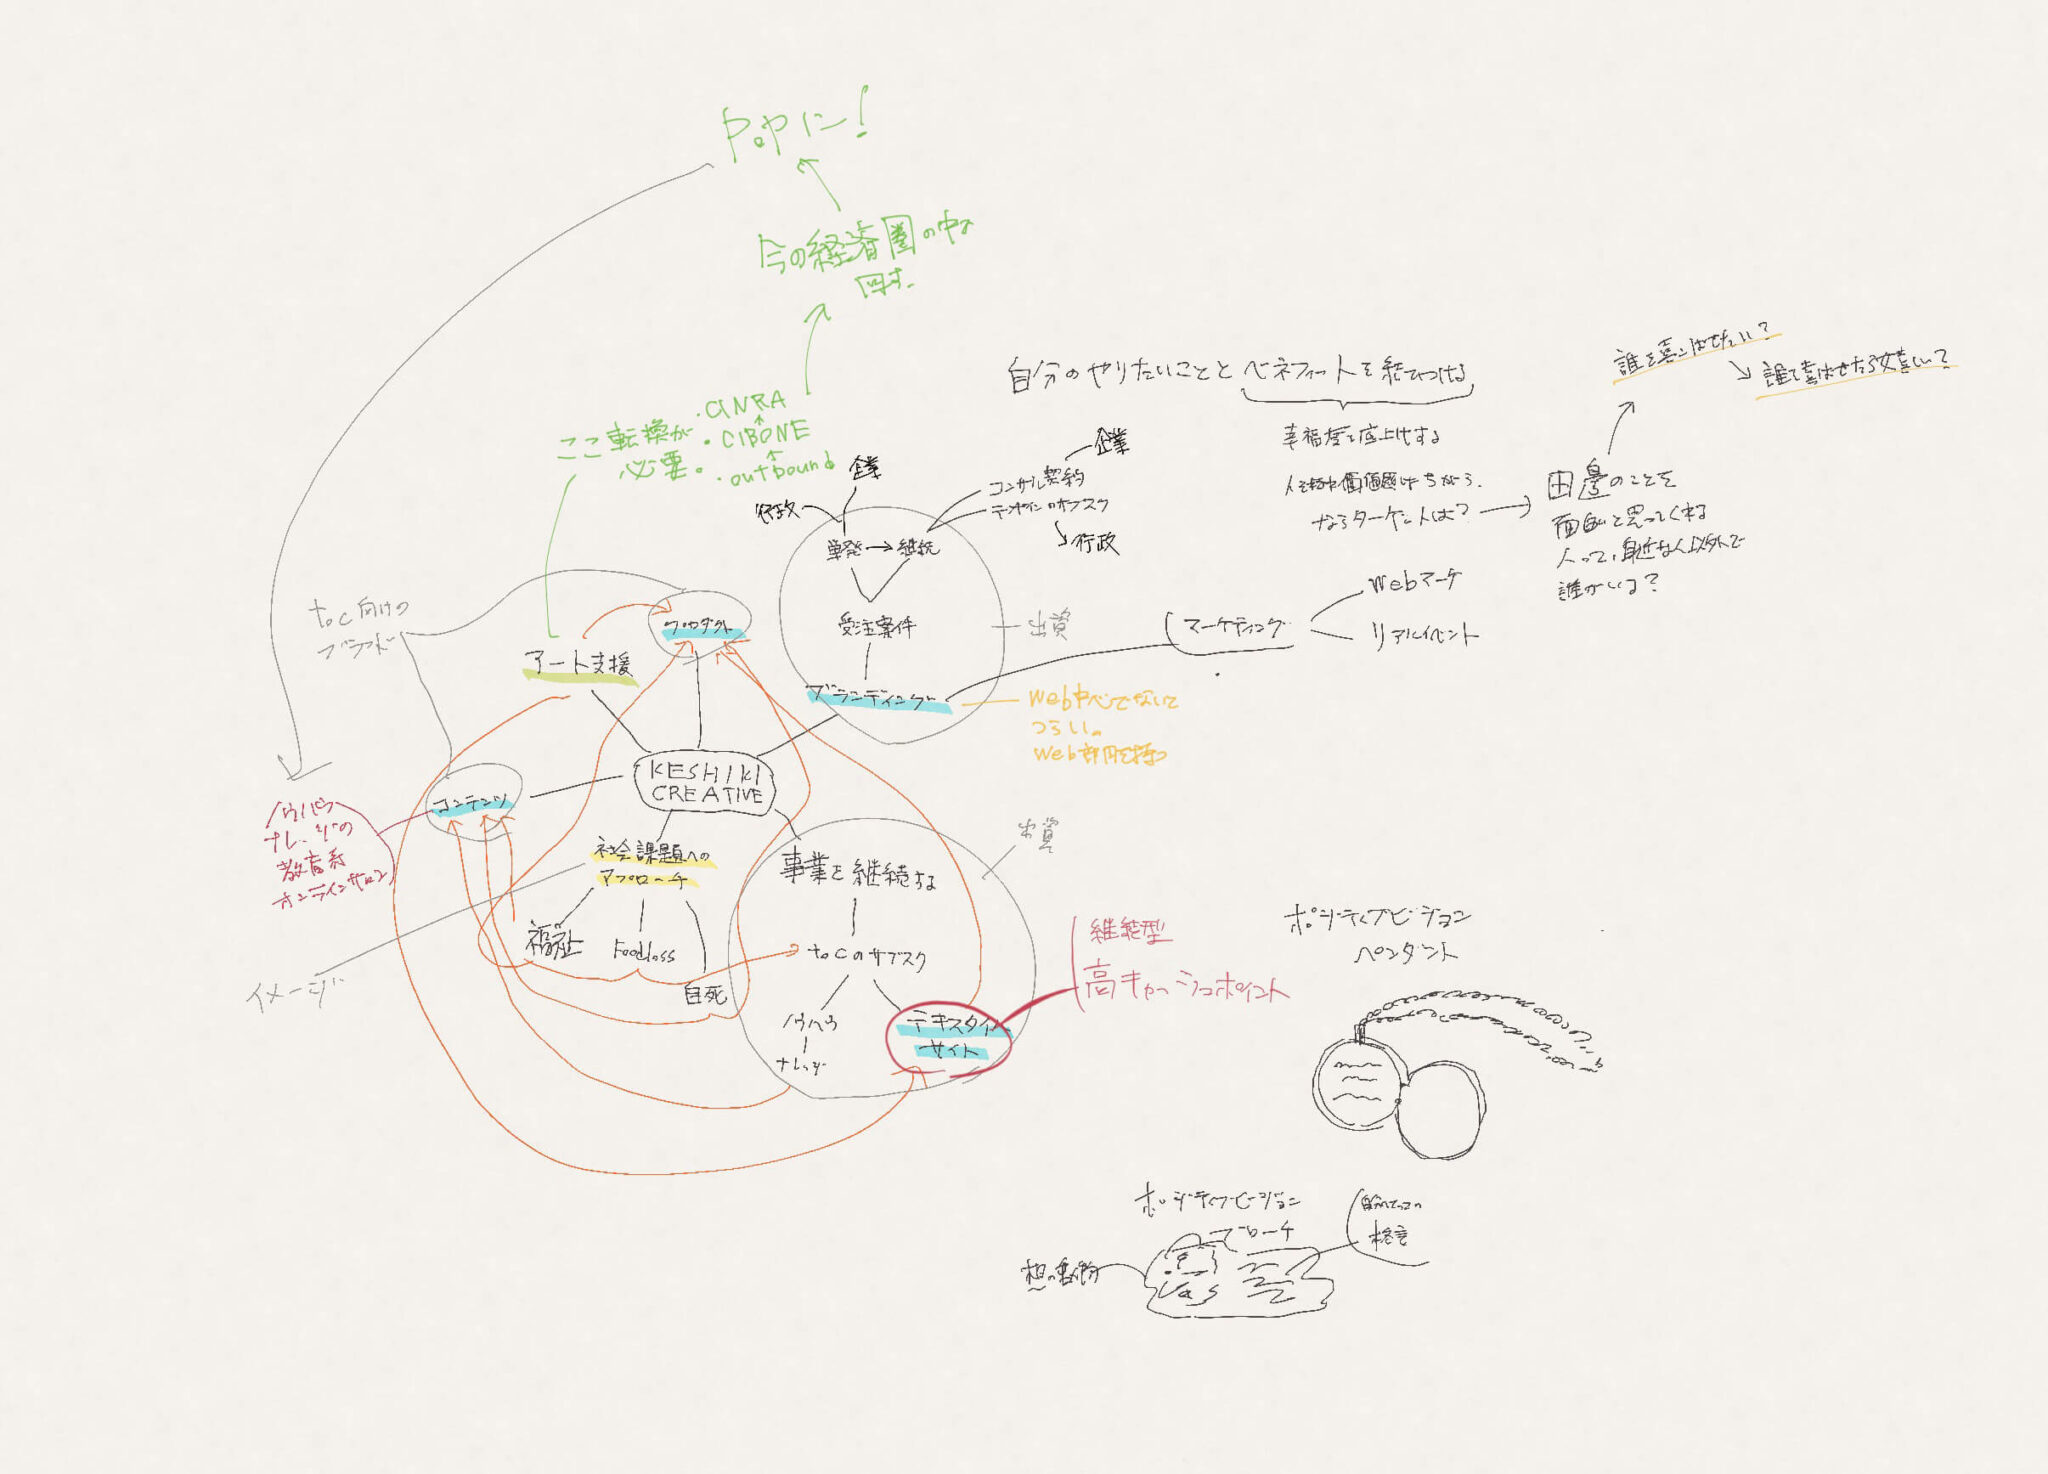 POPに!
今の経済圏の中で
回す。
ここ転換が
必要。
・CINRA
・CIBONE
・outbound
自分のやりたいこととベネフィットを結びつける
幸福度を底上げする
ならターゲットは?
田邊のことを
面白いと思ってくれる
人って、身近な人以外で
誰がいる?
誰を喜ばせたい?
誰を喜ばせたら嬉しい?
企業
行政
単発→継続
受注案件
ブランディング
企業
コンサル契約
デザインのサブスク
行政
出資
マーケティング
Webマーケ
リアルイベント
Web中心でないと
つらい。
Web部門を持つ
toC向けの
ブランド
プロダクト
アート支援
KESHIKI
CREATIVE
コンテンツ
ノウハウ
ナレッジの
教育系
オンラインサロン
社会課題への
アプローチ
福祉
Foodloss
自死
イメージ
出資
事業を継続する
toCのサブスク
ノウハウ
ナレッジ
テキスタイル
サイト
継続型
高キャッシュポイント
ポジティブビジョン
ペンダント
ポジティブビジョン
ブローチ
格言